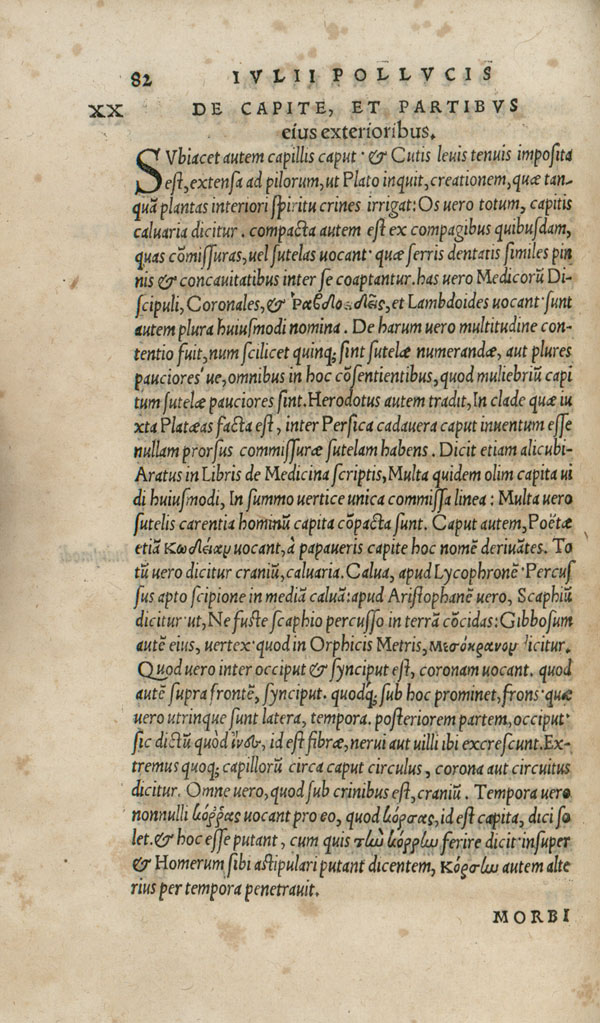 82 IVLII POLLVCIS
XX DE CAPITE, ET PARTIBVS
eius exterioribus.
SVbiacet autem capillis caput · & Cutis leuis tenuis imposita
est, extensa ad pilorum, ut Plato inquit, creationem, quæ tan-
quã plantas interiori spiritu crines irrigat: Os uero totum, capitis
caluaria dicitur . compacta autem est ex compagibus quibusdam,
quas cõmissuras, uel sutelas uocant · quæ serris dentatis similes pin
nis & concauitatibus inter se coaptantur. has uero Medicorũ Di-
scipuli, Coronales, & Ῥαβδοειδεῖς, et Lambdoides uocant · sunt
autem plura huiusmodi nomina . De harum uero multitudine con-
tentio fuit, num scilicet quinq; sint sutelæ numerandæ, aut plures
pauciores ue, omnibus in hoc cõsentientibus, quod muliebriũ capi
tum sutelæ pauciores sint. Herodotus autem tradit, In clade quæ iu
xta Platæas facta est, inter Persica cadauera caput inuentum esse
nullam prorsus commissuræ sutelam habens . Dicit etiam alicubi-
Aratus in Libris de Medicina scriptis, Multa quidem olim capita ui
di huiusmodi, In summo uertice unica commissa linea : Multa uero
sutelis carentia hominũ capita cõpacta sunt. Caput autem, Poëtæ
etiã κωδείαν uocant, à papaueris capite hoc nomẽ deriuãtes. To
tũ uero dicitur craniũ, caluaria. Calua, apud Lycophronẽ · Percus
sus apto scipione in mediã caluã: apud Aristophanẽ uero, Scaphiũ
dicitur · ut, Ne fuste scaphio percusso in terrã cõcidas: Gibbosum
autẽ eius, uertex · quod in Orphicis Metris, μεσόκρανον dicitur.
Quod uero inter occiput & synciput est, coronam uocant. quod
autẽ supra frontẽ, synciput. quodq; sub hoc prominet, frons · quæ
uero utrinque sunt latera, tempora. posteriorem partem, occiput ·
sic dictũ quòd ἶνες, id est fibræ, nerui aut uilli ibi excrescunt. Ex-
tremus quoq; capillorũ circa caput circulus, corona aut circuitus
dicitur. Omne uero, quod sub crinibus est, craniũ . Tempora uero
nonnulli κόῤῥας uocant pro eo, quod κόρσας, id est capita, dici so
let. & hoc esse putant, cum quis τὴν κόρρην ferire dicit · insuper
& Homerum sibi astipulari putant dicentem, Κόρσην autem alte
rius per tempora penetrauit.
MORBI